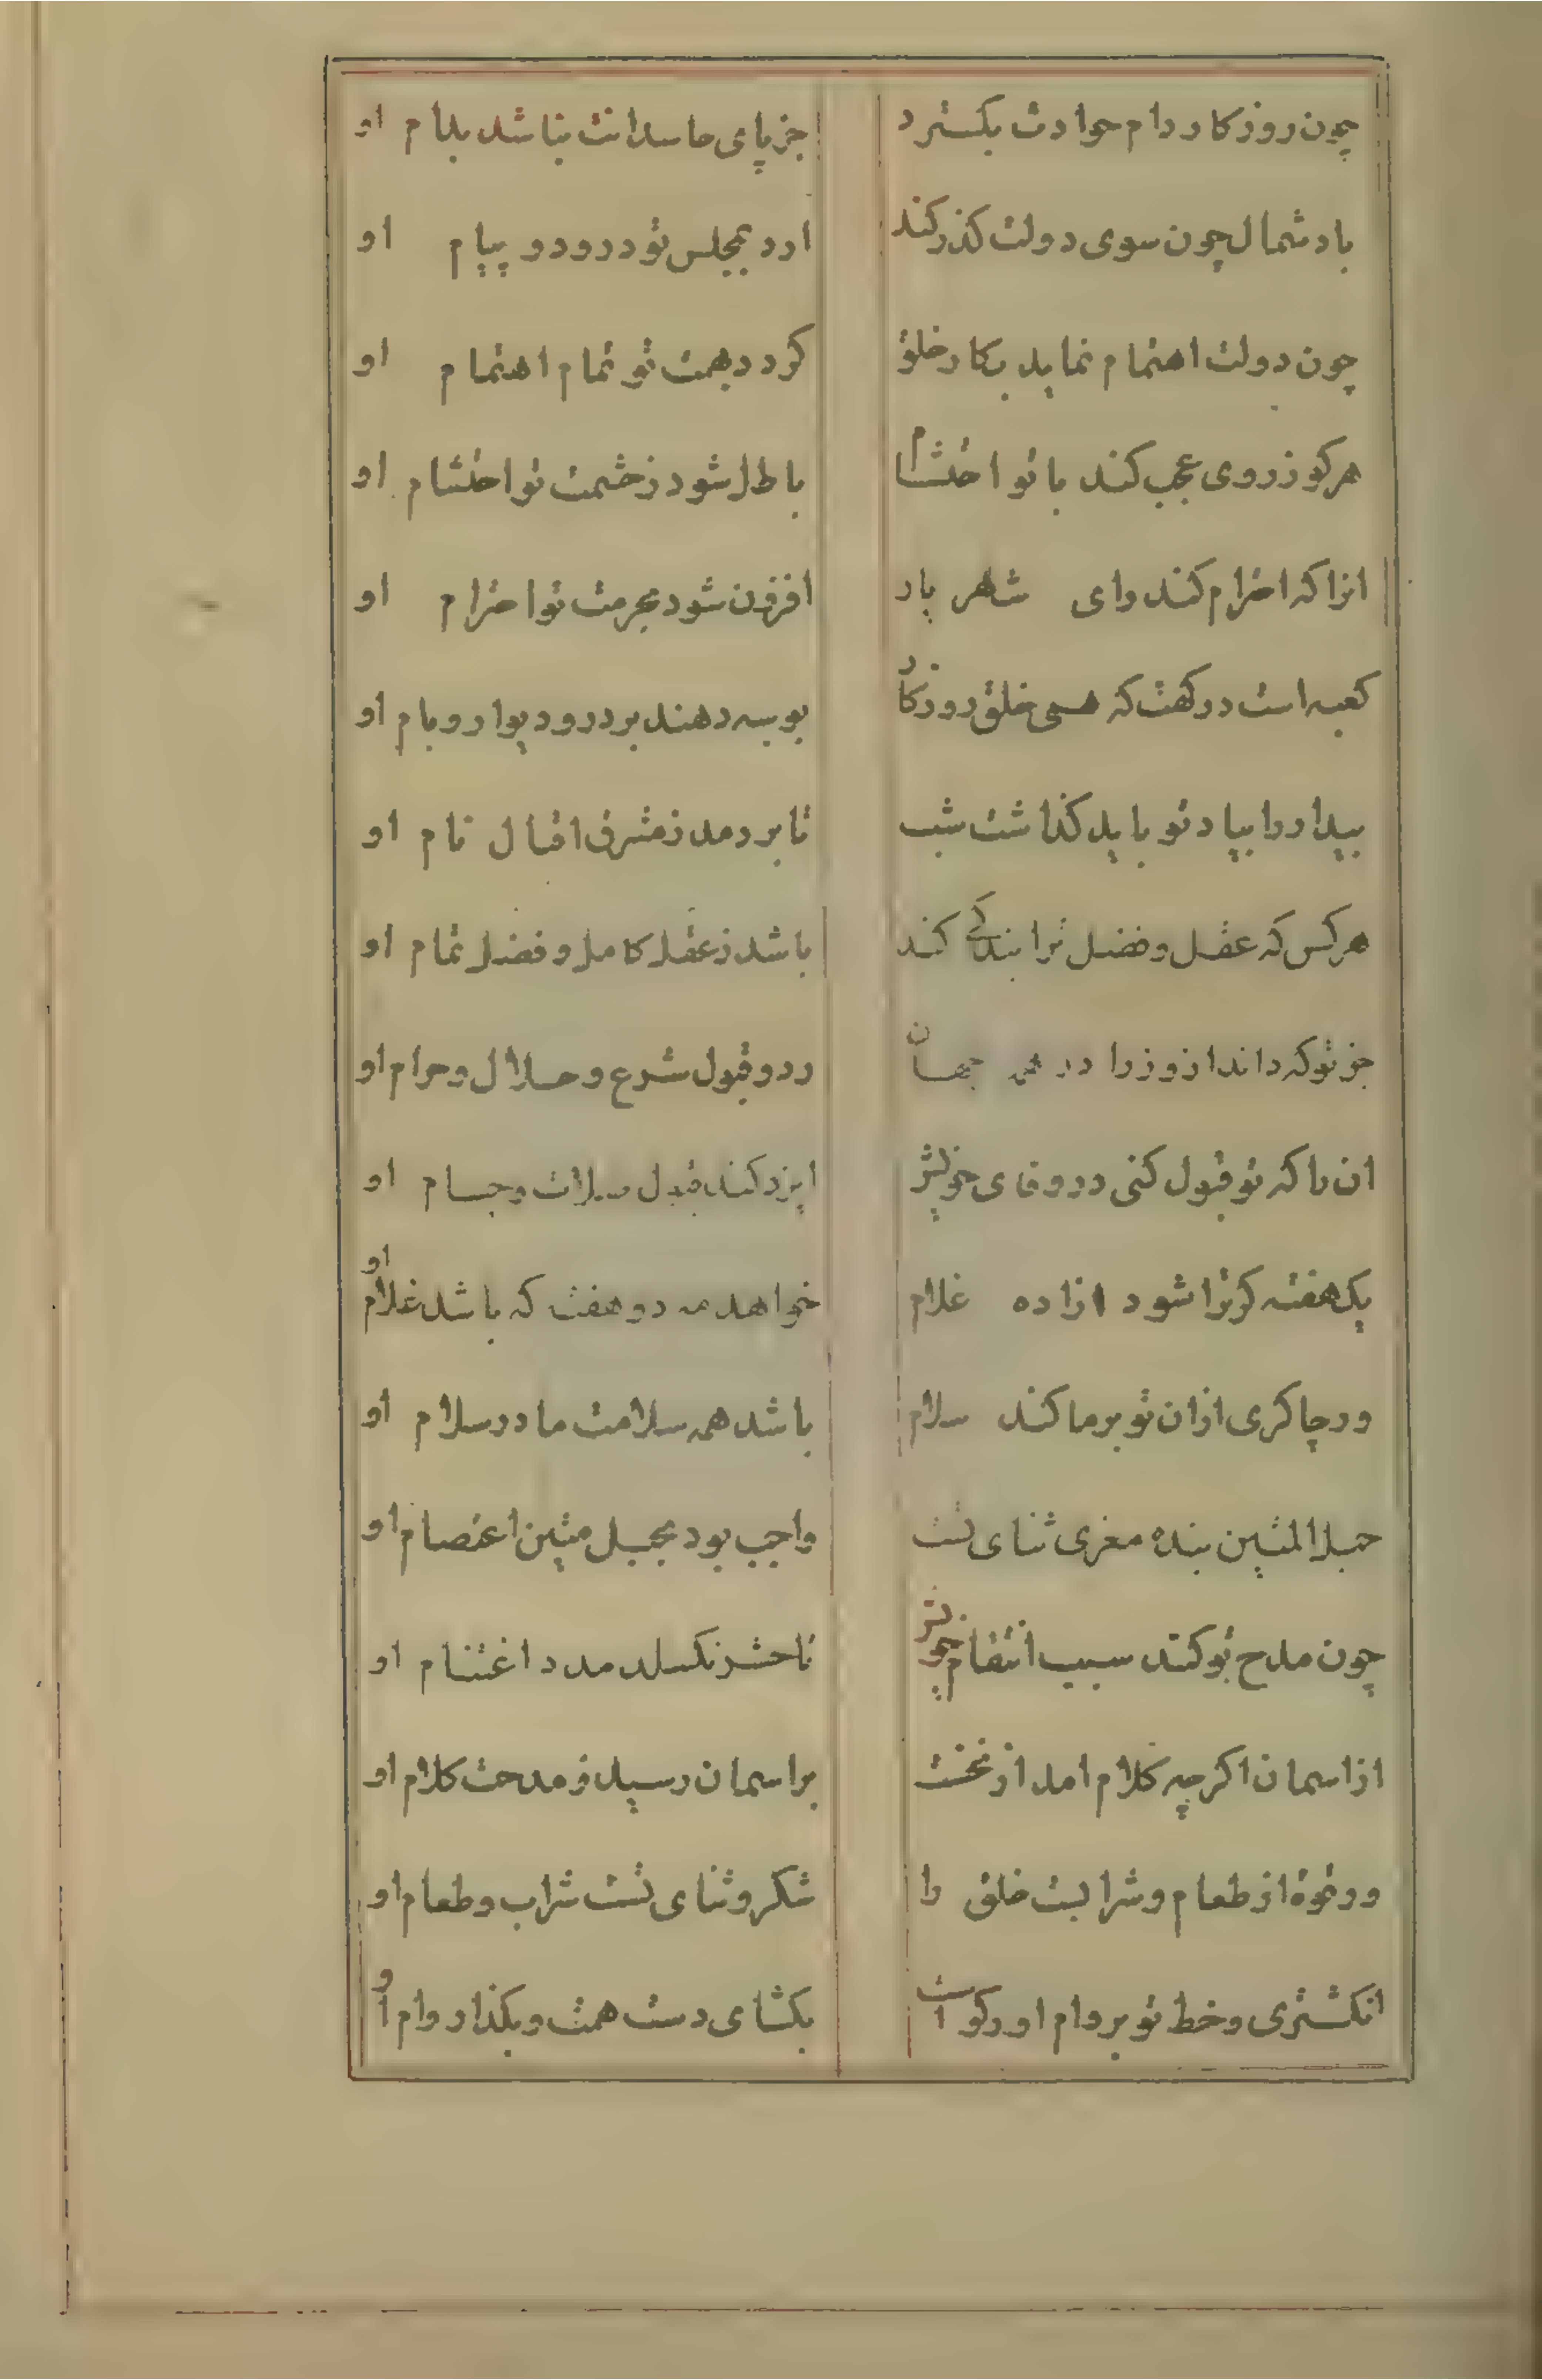 چون روزکار دام حوادث بکسترد
جز پای حاسدانت نباشد بدام او
باد شمال چون سوی دولت کذر کند
ارد بمجلس تو درود و پیام او
چون دولت اهتمام نماید بکار خلق
کردد بهمت تو تمام اهتمام او
هرکو ز روی عجب کند با تو احتشام
باطل شود ز حشمت تو احتشام او
انرا که احترام کند رای شهریار
افزون شود بحرمت تو احترام او
کعبه است درکهت که همی خلق روزکار
بوسه دهند بر در و دیوار و بام او
بیدار را بیاد تو باید کذاشت شب
تا بردمد ز مشرق اقبال نام او
هرکس که عقل و فضل ترا بندکی کند
باشد ز عقل کامل و فضل تمام او
جز تو که داند از وزرا در همه جهان
رد و قبول شرع و حلال و حرام او
ان را که تو قبول کنی در وفای خویش
ایزد کند قبول صلات و صیام او
یک هفته کر ترا شود ازاده غلام
خواهد مه دو هفت که باشد غلام او
ور چاکری ازان تو بر ما کند سلام
باشد همه سلامت ما در سلام او
حبل المتین بنده معزی ثنای تست
واجب بود بحبل متین اعتصام او
چون مدح تو کند سبب انتقام خویش
تا حشر نکسلد مدد اغتنام او
از اسمان اکرچه کلام امد از نخست
بر اسمان رسید ز مدحت کلام او
ور قوة از طعام و شرابست خلق را
شکر و ثنای تست شراب و طعام او
انکشتری و خط تو بر وام او رکو است
بکشای دست همت و بکذار وام او